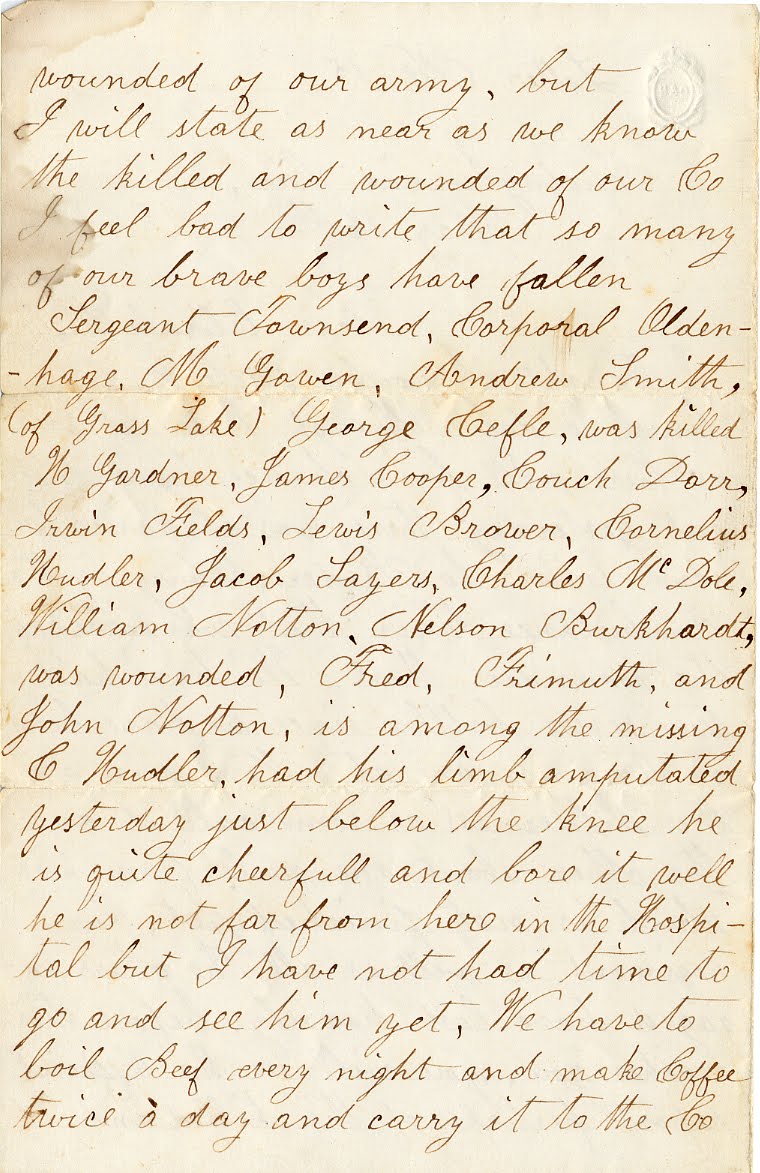 wounded of our army, but
I will state as near as we know
the killed and wounded of our Co
I feel bad to write that so many
of our brave boys have fallen
Sergeant Townsend, Corporal Olden-
-hage, M Gowen, Andrew Smith,
(of Grass Lake) George Cefle, was killed
H Gardner, James Cooper, Couch Dorr,
Irwin Fields, Lewis Brower, Cornelius
Hudler, Jacob Sayers, Charles Mc Dole,
William Notton, Nelson Burkhardt,
was wounded, Fred, Frimuth, and
John Notton, is among the missing
C Hudler, had his limb amputated
yesterday just below the knee he
is quite cheerfull and bore it well
he is not far from here in the Hospi-
tal but I have not had time to
go and see him yet, We have to
boil Beef every night and make Coffee
twice a day and carry it to the Co